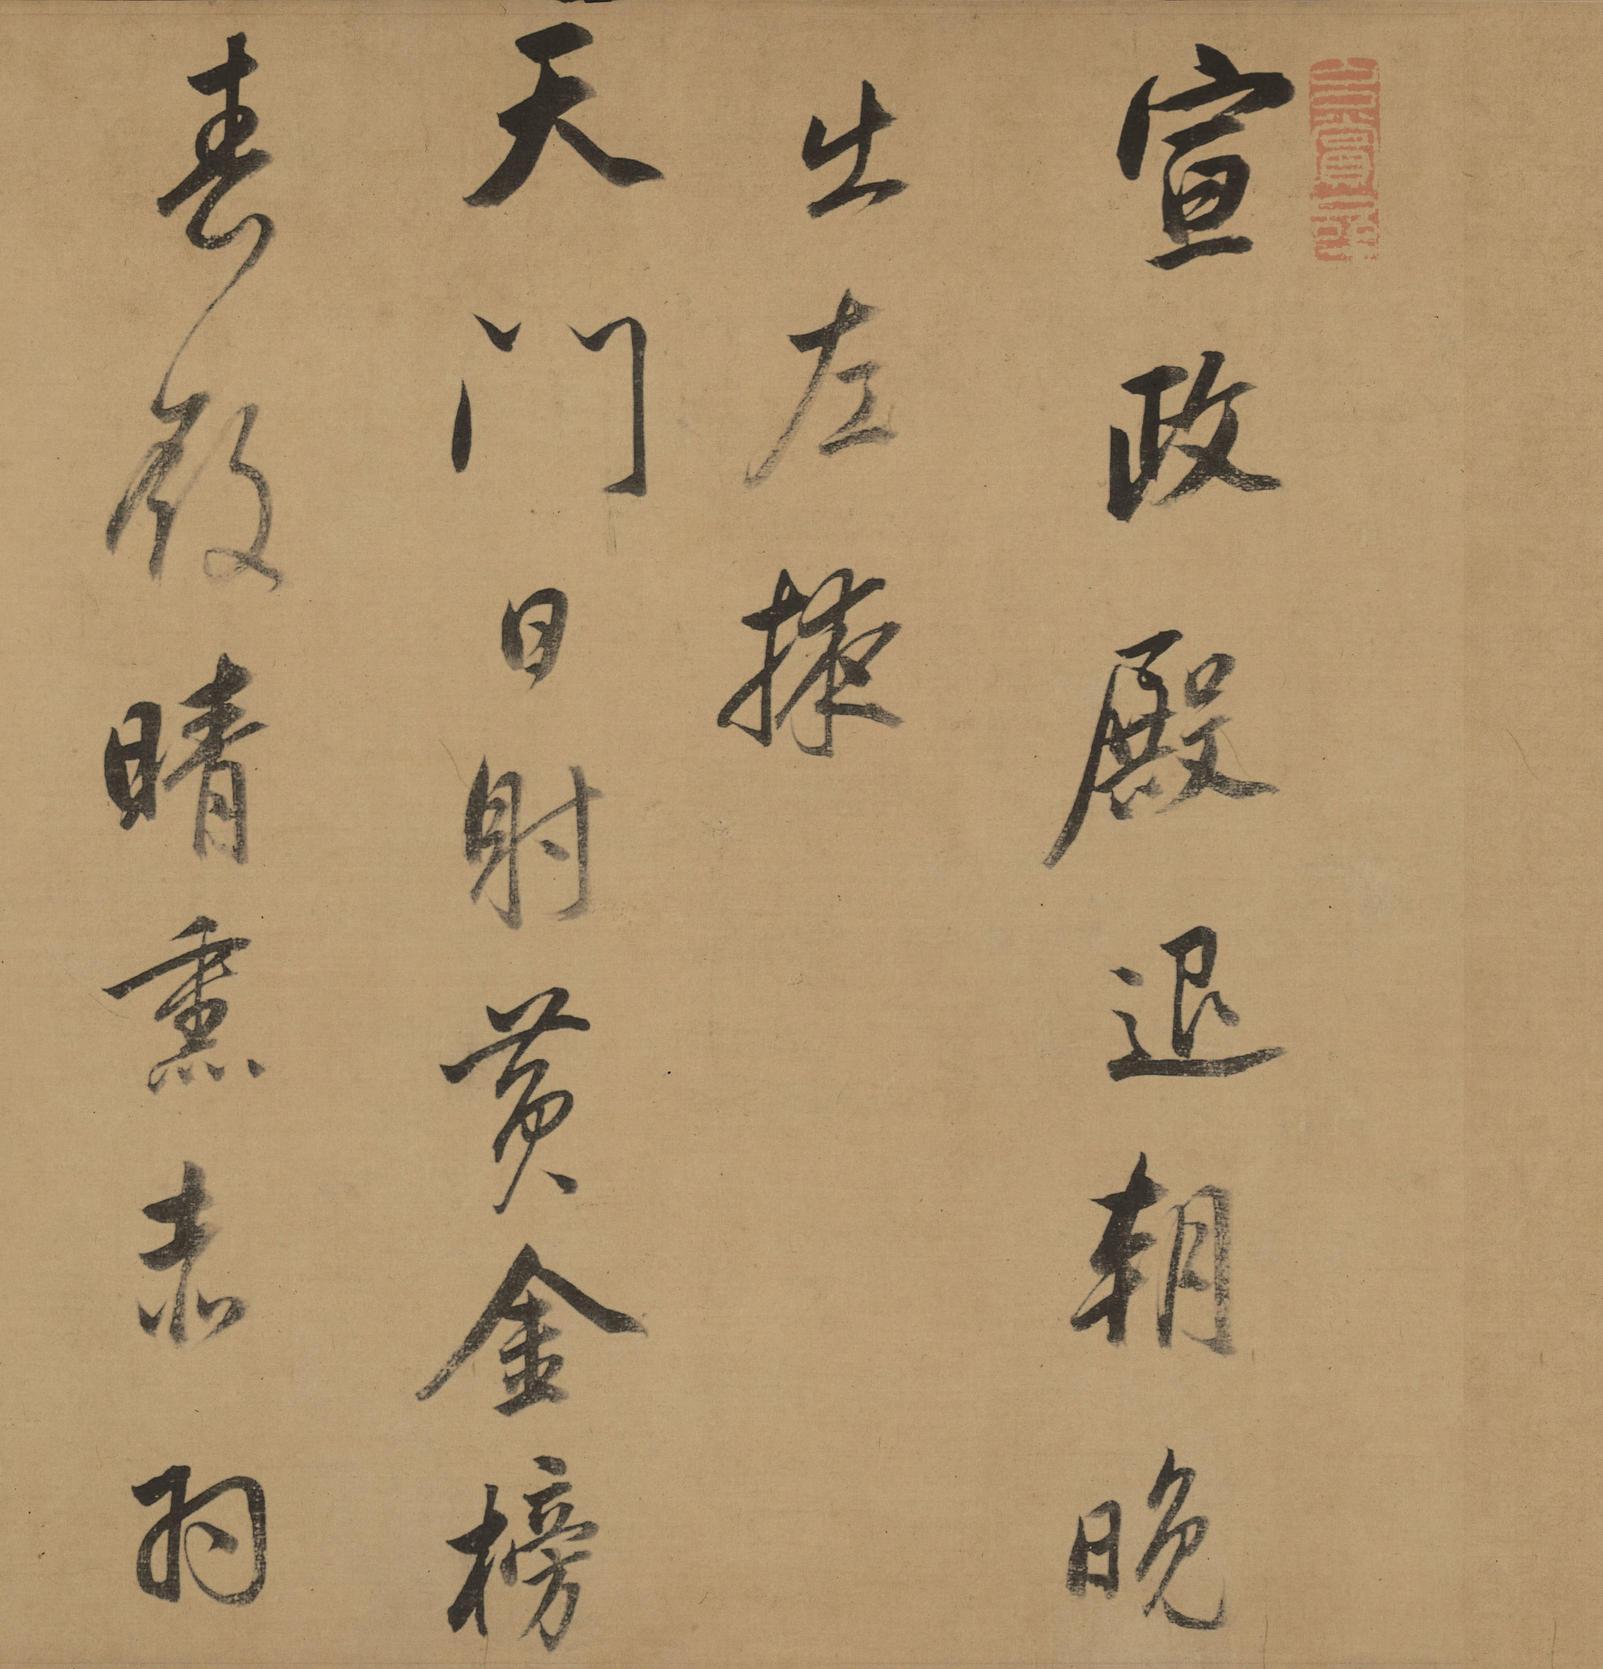 宣政殿退朝晚
出左掖
天門日射黃金榜
春殿晴熏赤羽